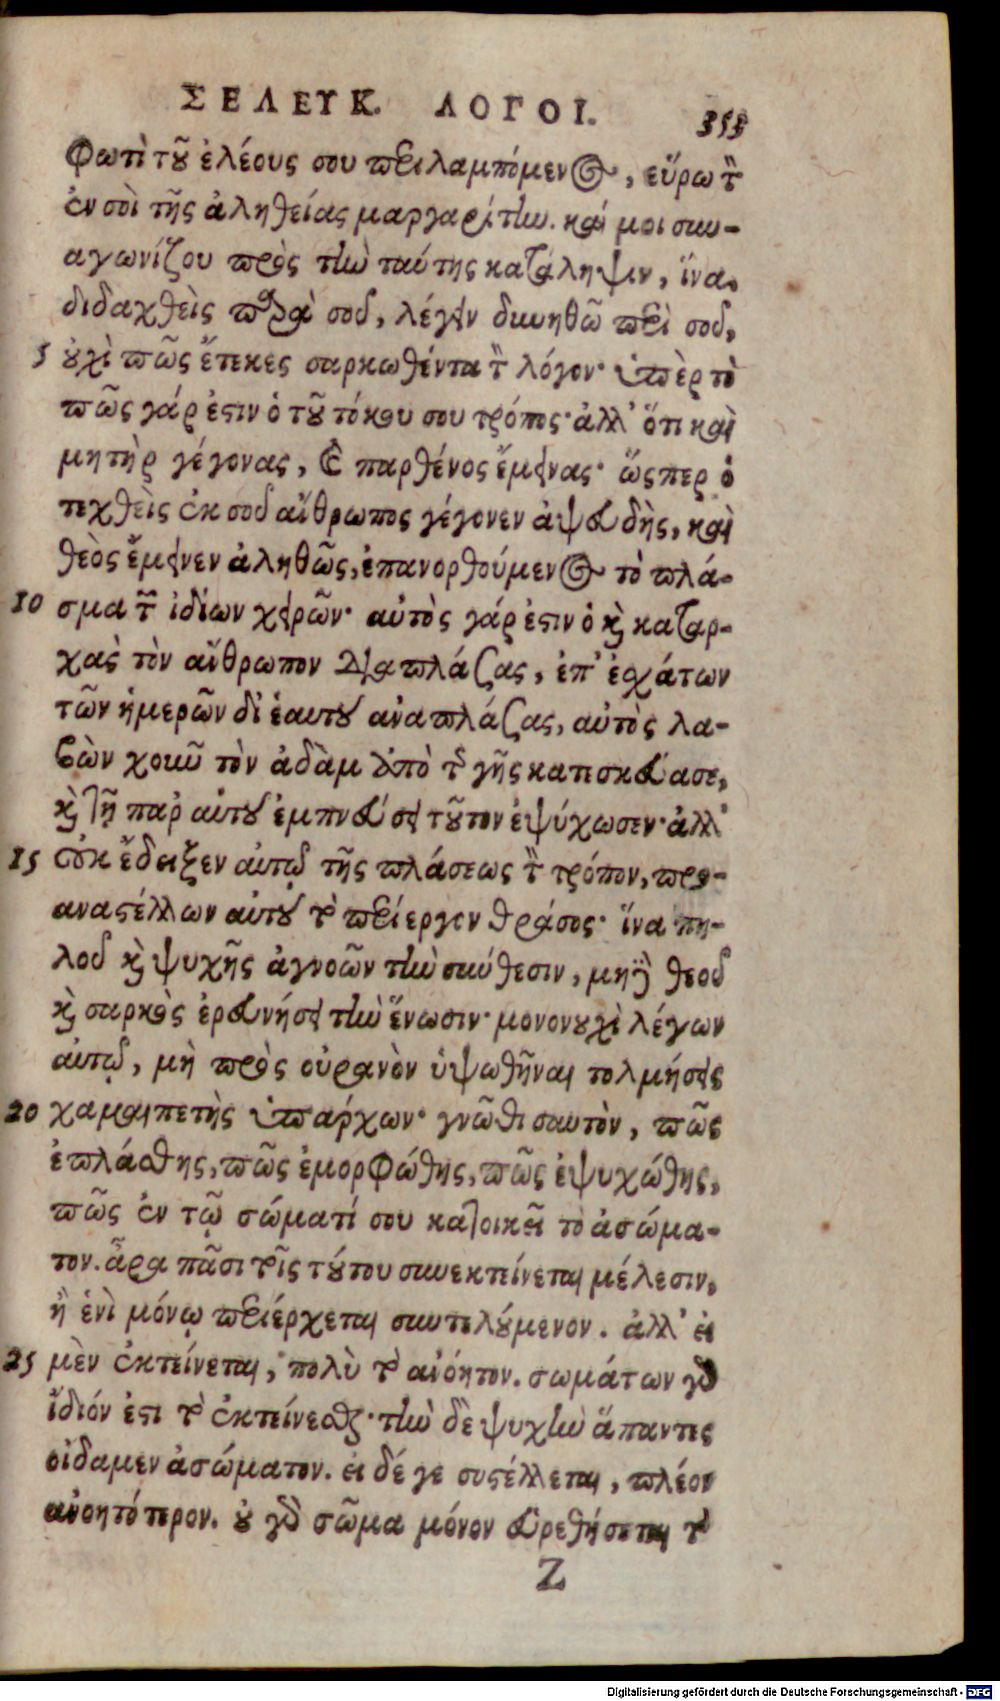 ΣΕΛΕΥΚ. ΛΟΓΟΙ. 353
φωτὶ τοῦ ἐλέους σου περιλαμπόμενος, εὕρω τὸν
ἐν σοὶ τῆς ἀληθείας μαργαρίτην. καί μοι συν-
αγωνίζου πρὸς τὴν ταύτης κατάληψιν, ἵνα
διδαχθεὶς παρὰ σοῦ, λέγειν δυνηθῶ περὶ σοῦ,
5 οὐχὶ πῶς ἔτεκες σαρκωθέντα τὸν λόγον· ὑπὲρ τὸ
πῶς γάρ ἐστιν ὁ τοῦ τόκου σου τρόπος· ἀλλ' ὅτι καὶ
μητὴρ γέγονας, καὶ παρθένος ἔμεινας· ὥσπερ ὁ
τεχθεὶς ἐκ σοῦ ἄνθρωπος γέγονεν ἀψευδὴς, καὶ
θεὸς ἔμεινεν ἀληθῶς, ἐπανορθούμενος τὸ πλά-
10 σμα τῶν ἰδίων χειρῶν· αὐτὸς γάρ ἐστιν ὁ καὶ καταρ-
χὰς τὸν ἄνθρωπον διαπλάσας, ἐπ' ἐσχάτων
τῶν ἡμερῶν δι' ἑαυτοῦ ἀναπλάσας, αὐτὸς λα-
βὼν χοῦν τὸν ἀδὰμ ἀπὸ τῆς γῆς κατεσκεύασε,
καὶ τῇ παρ' αὐτοῦ ἐμπνεύσει τοῦτον ἐψύχωσεν· ἀλλ'
15 οὐκ ἔδειξεν αὐτῷ τῆς πλάσεως τὸν τρόπον, προ-
αναστέλλων αὐτοῦ τὸ περίεργον θράσος· ἵνα πη-
λοῦ καὶ ψυχῆς ἀγνοῶν τὴν σύνθεσιν, μηδὲ θεοῦ
καὶ σαρκὸς ἐρευνήσῃ τὴν ἕνωσιν· μονονουχὶ λέγων
αὐτῷ, μὴ πρὸς οὐρανὸν ὑψωθῆναι τολμήσεις
20 χαμαιπετὴς ὑπάρχων· γνῶθι σαυτὸν, πῶς
ἐπλάσθης, πῶς ἐμορφώθης, πῶς ἐψυχώθης,
πῶς ἐν τῷ σώματί σου κατοικεῖ τὸ ἀσώμα-
τον. ἆρα πᾶσι τοῖς τούτου συνεκτείνεται μέλεσιν,
ἢ ἑνὶ μόνῳ περιέρχεται συντελούμενον. ἀλλ' εἰ
25 μὲν ἐκτείνεται, πολὺ τὸ ἀνόητον. σωμάτων γὰρ
ἴδιόν ἐστι τὸ ἐκτείνεσθαι· τὴν δὲ ψυχὴν ἅπαντες
οἴδαμεν ἀσώματον. εἰ δέ γε συστέλλεται, πλέον
ἀνοητότερον. οὐ γὰρ σῶμα μόνον εὑρεθήσεται τὸ
Z
Digitalisierung gefördert durch die Deutsche Forschungsgemeinschaft - DFG